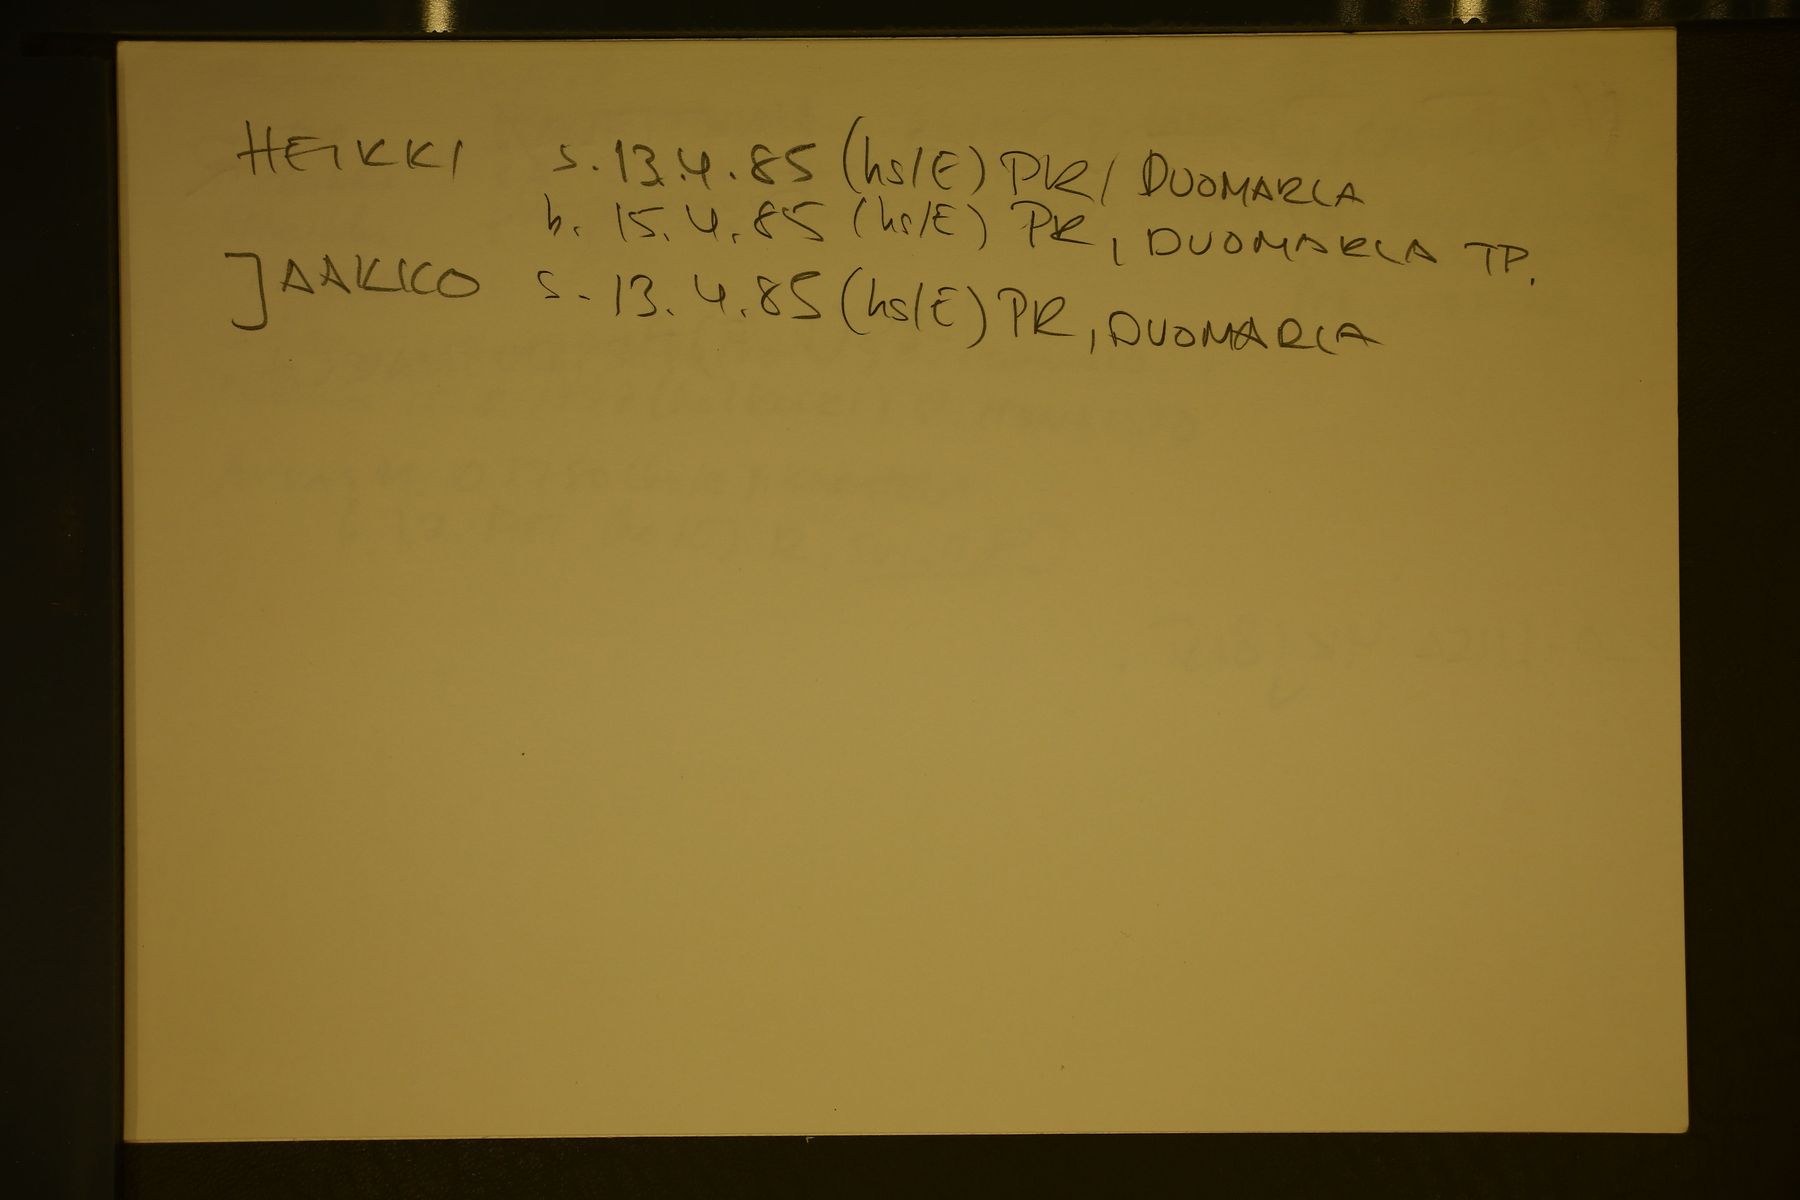 HEIKKI s. 13.4.85 (hs/E) PR, DUOMARLA
h. 15.4.85 (hs/E) PR, DUOMARLA TP.
JAAKKO s. 13.4.85 (hs/E) PR, DUOMARLA